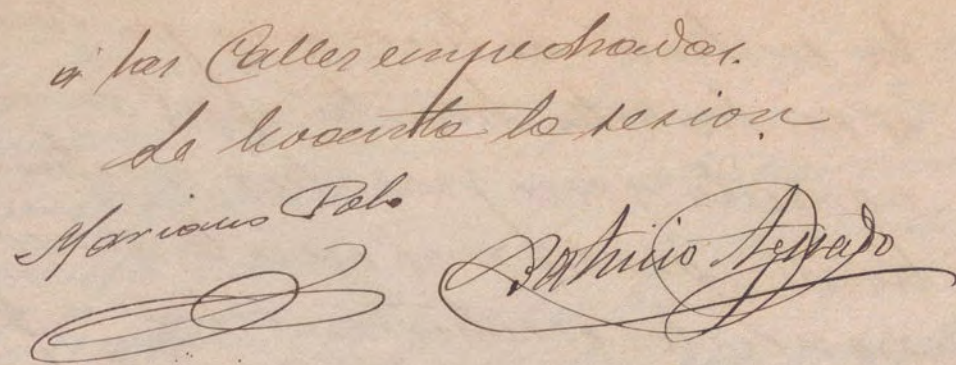 á las Calles empedradas.
Se levanta la sesion
Mariano Polo
Patricio